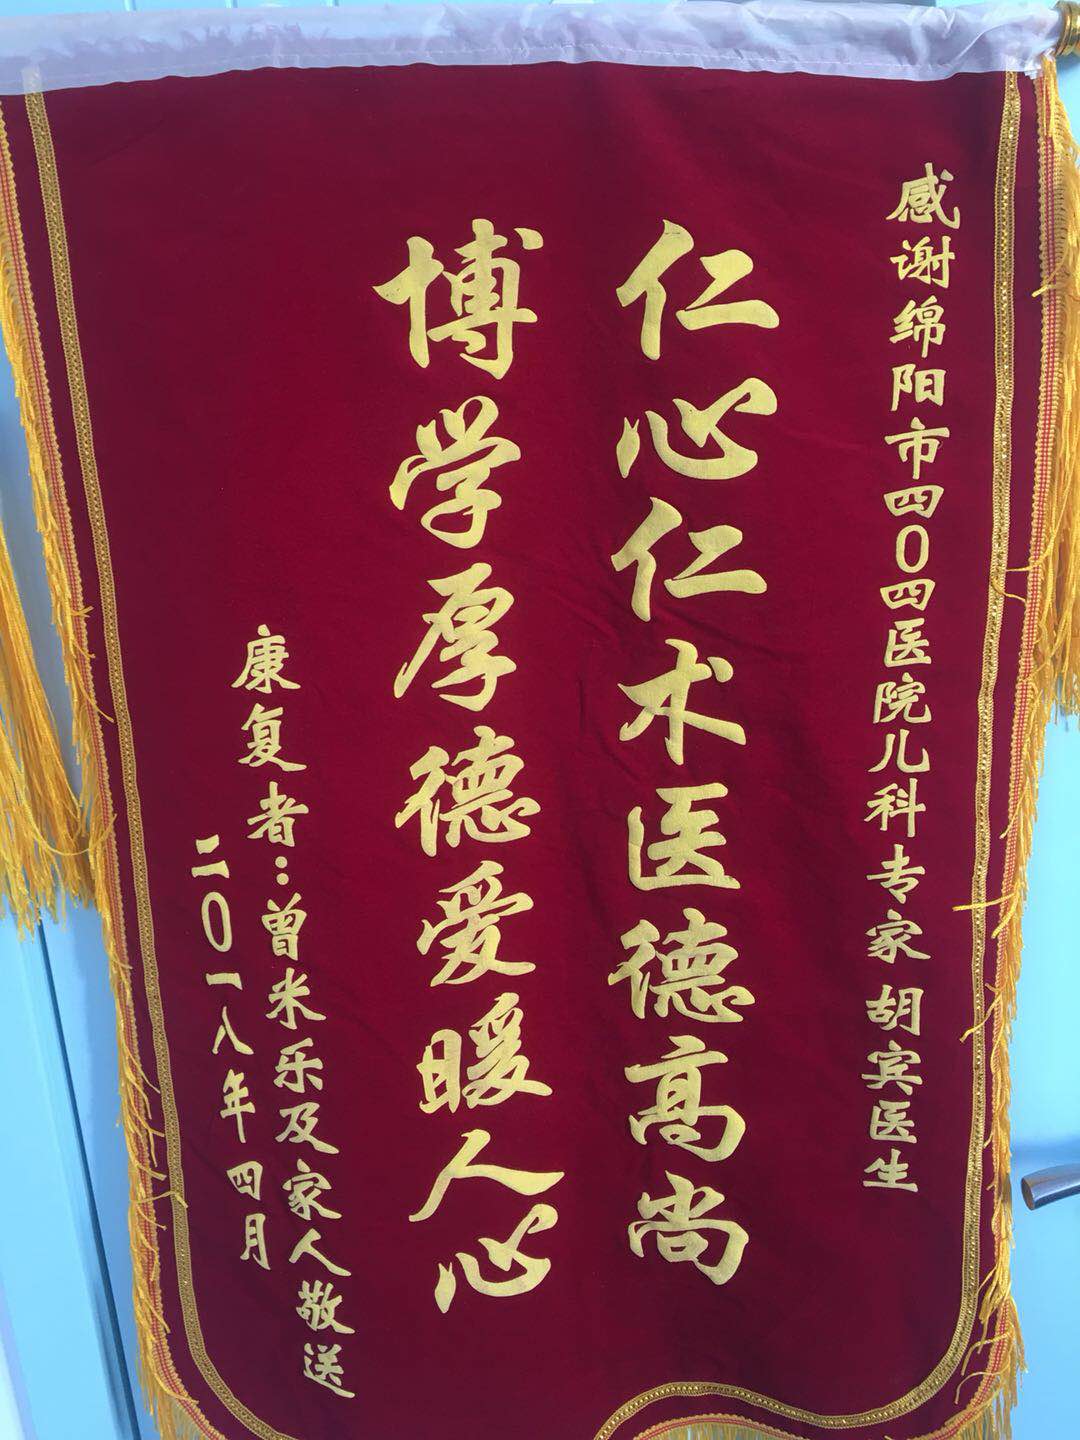 感谢绵阳市四0四医院儿科专家胡宾医生
仁心仁术医德高尚
博学厚德爱暖人心
康复者:曾米乐及家人敬送
二0一八年四月